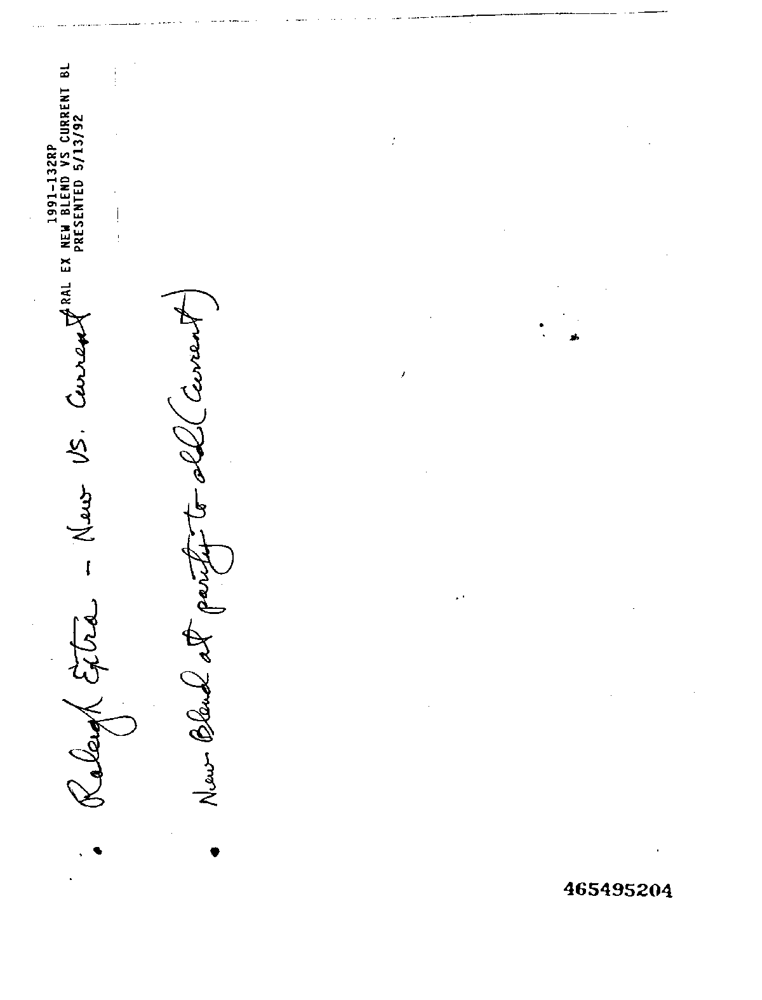 1991-132RP
RAL EX NEW BLEND VS CURRENT BL
PRESENTED 5/13/92
• Raleigh Extra - New VS. Current
• New Blend at parity to old (Current)
465495204